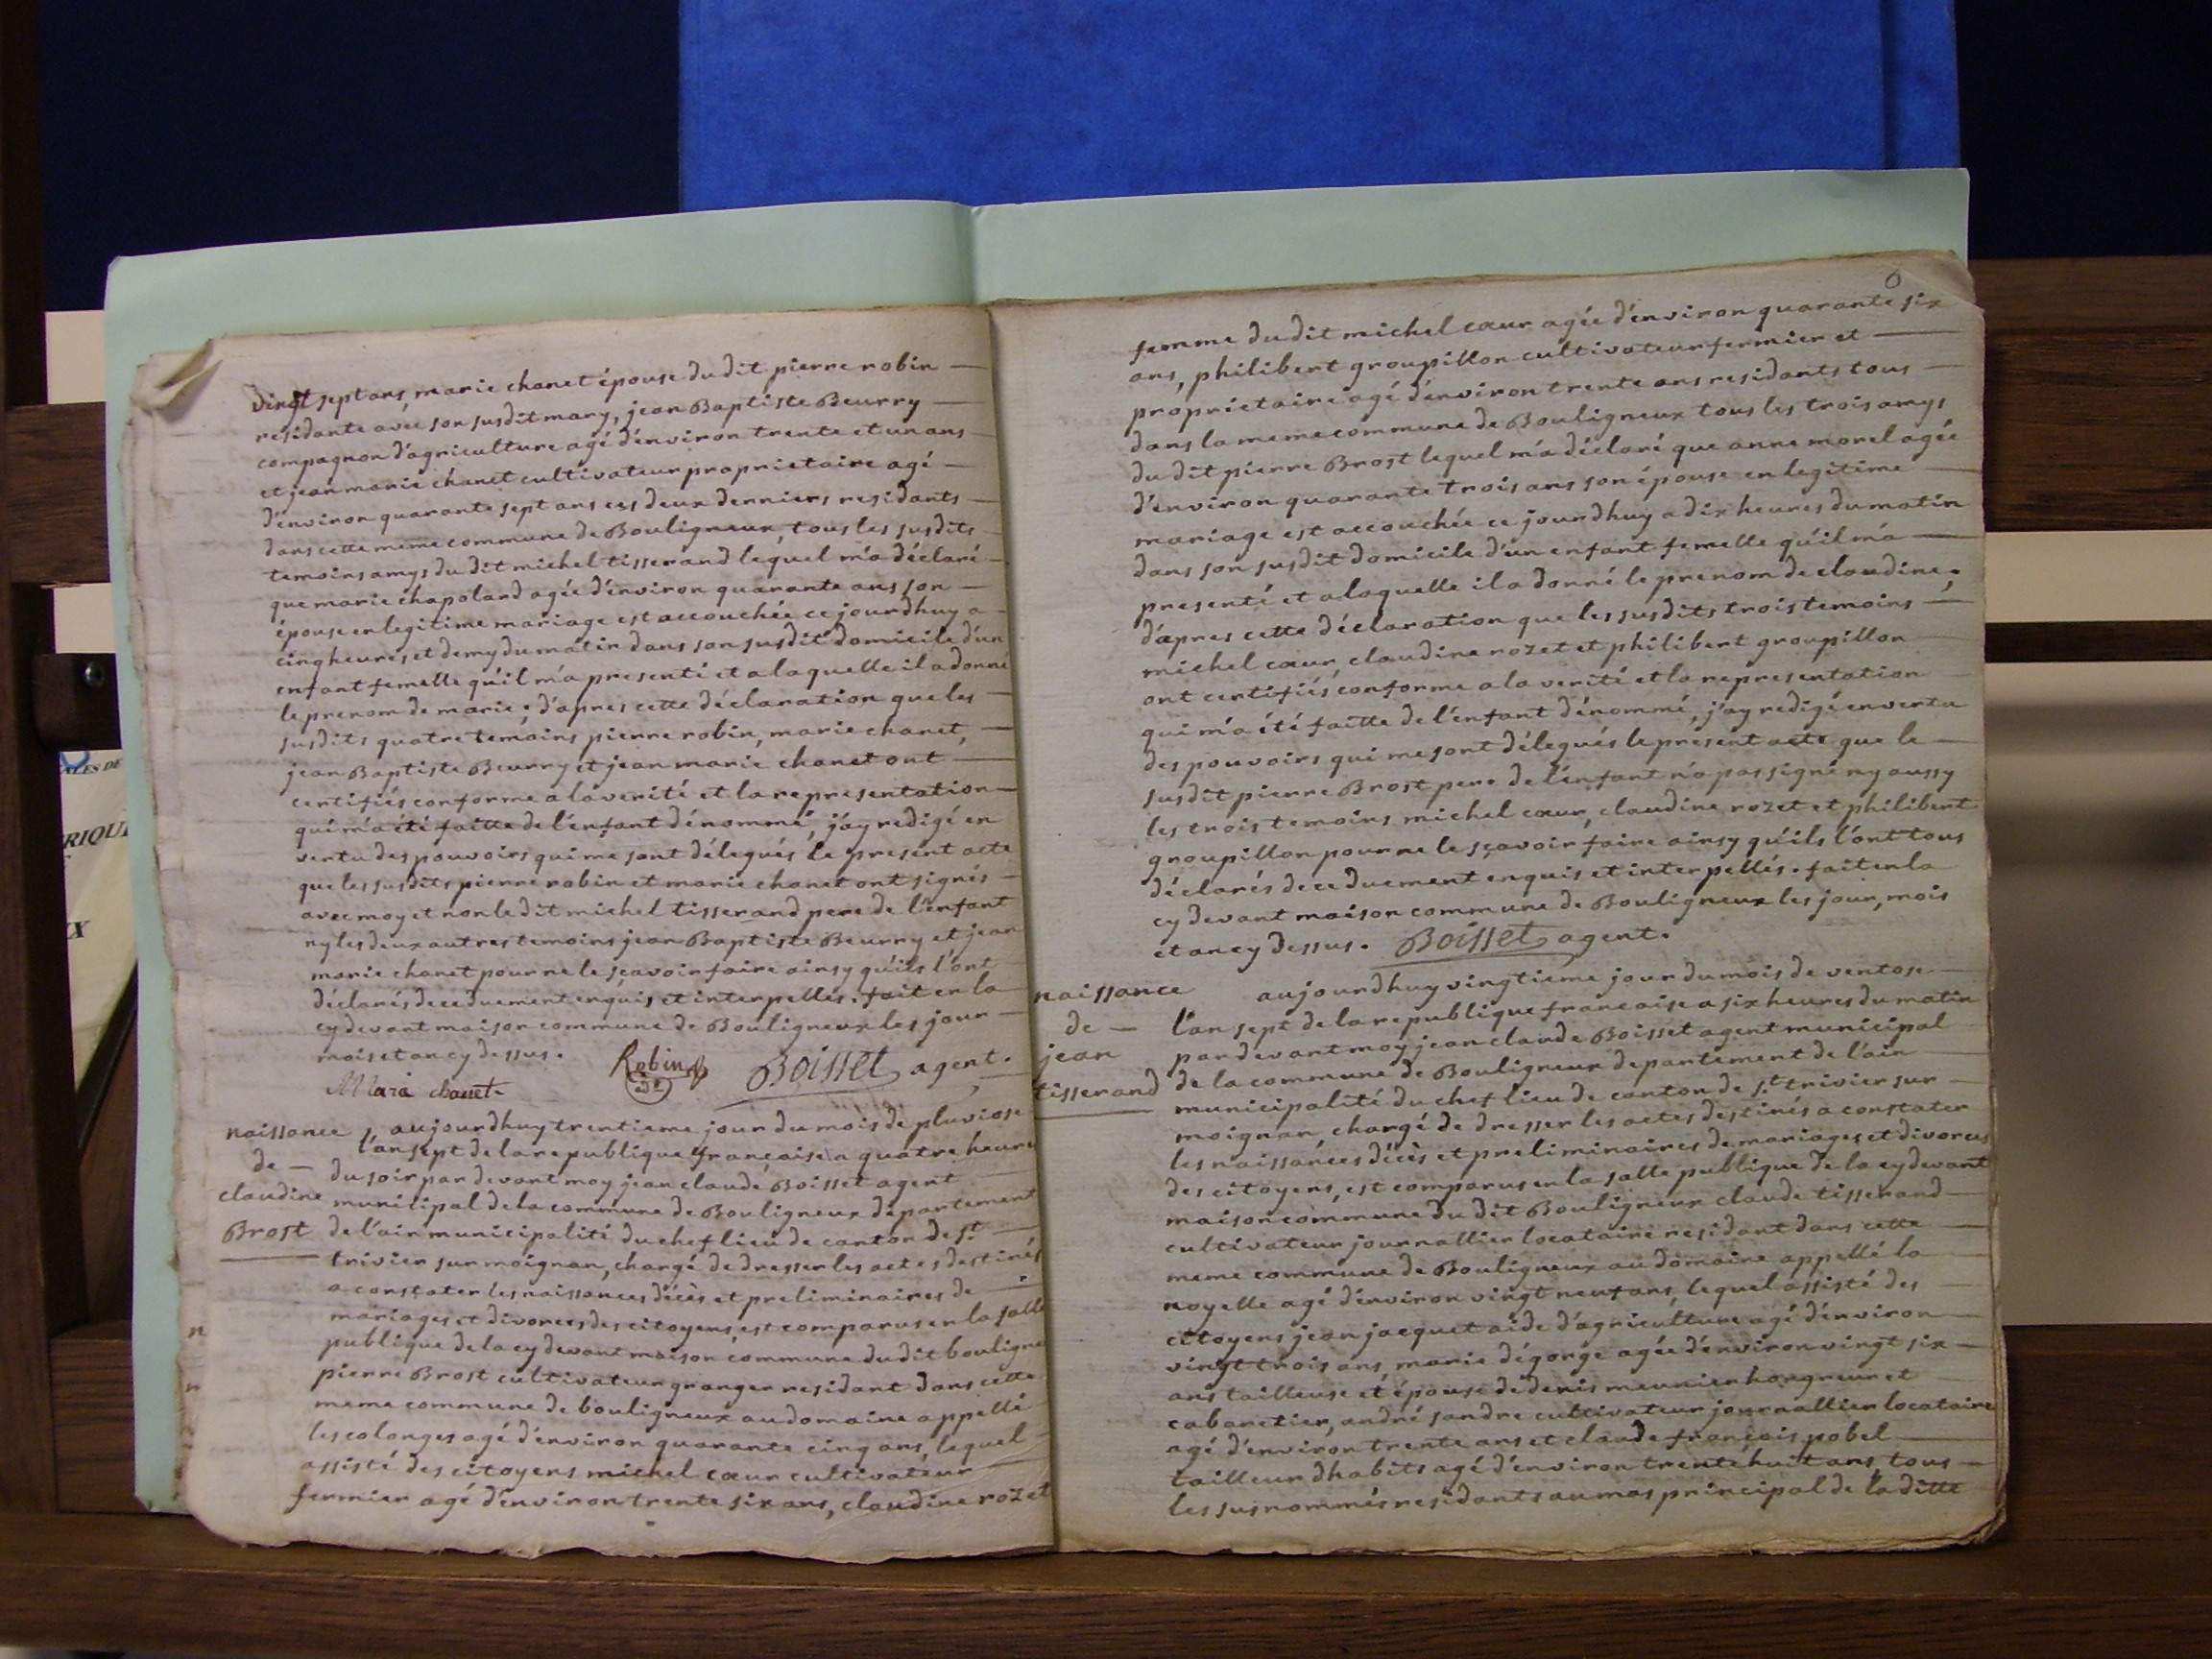 vingt sept ans, marie chanet épouse du dit pierre robin
résidante avéc son susdit mary, jean Baptiste Beurry
compagnon d'ágriculture agé d'énviron trente et un ans
et jean marie chanet cultivateur proprietaire agé
d'énviron quarante sept ans ces deux derniers residants
dans cette meme commune de Bouligneux, tous les susdits
temoins amys du dit michel tisserand lequel m'á déclaré
que marie chapoland agée d'énviron quarante ans son
épouse en legitime mariage est accouchée ce jourdhuy a
cinq heures et demy du matin dans son susdit domicile d'un
enfant femelle qu'il m'á presenté et a laquelle il a donné
le prenom de marie; d'ápres cette déclaration que les
susdits quatre temoins pierre robin, marie chanet,
jean Baptiste Beurry et jean marie chanet ont
certifiés conforme a la verité et la representation
qui m'á été faitte de l'enfant dénommé, j'áy redigé en
vertu des pouvoirs qui me sont délegués le present acte
que les susdits pierre robin et marie chanet ont signés
avec moy et non le dit michel tisserand pere de l'enfant
ny les deux autres temoins jean Baptiste Beurry et jean
marie chanet pour ne le sçavoir faire ainsy qu'ils l'ónt
déclarés de ce duement enquis et interpellés. fait en la
cy devant maison commune de Bouligneux les jour
mois et an cy dessus.
Robin Boisset agent.
Maria chanet
naissance
de
claudine
Brost
aujourdhuy trentieme jour du mois de pluviose
l'an sept de la republique française a quatre heure
du soir par devant moy jean claude Boisset agent
municipal de la commune de Bouligneux departement
de l'ain municipalité du chef lieu de canton de st
trivier sur moignan, chargé de dresser les actes destinés
a constater les naissances décès et preliminaires de
mariages et divorces des citoyens, est comparus en la salle
publique de la cy devant maison commune du dit bouligne
pierre Brost cultivateur granger residant dans cette
meme commune de bouligneux au domaine appellé
les colonges agé d'énviron quarante cinq ans, lequel
assisté des citoyens michel cœur cultivateur
fermier agé d'énviron trente six ans, claudine rozet
6
femme du dit michel cœur agée d'énviron quarante six
ans, philibert groupillon cultivateur fermier et
proprietaire agé d'énviron trente ans residants tous
dans la meme commune de Bouligneux tous les trois amys
du dit pierre Brost lequel m'á déclaré que anne morel agée
d'énviron quarante trois ans son épouse en legitime
mariage est accouchée ce jourdhuy a dix heures du matin
dans son susdit domicile d'un enfant femelle qu'il m'á
presenté et a laquelle il a donné le prenom de claudine;
d'ápres cette déclaration que les susdits trois temoins
michel cœur, claudine rozet et philibert groupillon
ont certifiés conforme a la verité et la representation
qui m'á été faitte de l'enfant dénommé, j'áy redigé en vertu
des pouvoirs qui me sont délegués le present acte que le
susdit pierre Brost pere de l'enfant n'a pas signé ny aussy
les trois temoins michel cœur, claudine rozet et philibert
groupillon pour ne le sçavoir faire ainsy qu'ils l'ónt tous
déclarés de ce duement enquis et interpellés. fait en la
cy devant maison commune de Bouligneux les jour, mois
et an cy dessus. Boisset agent.
naissance
de
jean
tisserand
aujourdhuy vingtieme jour du mois de ventose
l'an sept de la republique francaise a six heures du matin
par devant moy jean claude Boisset agent municipal
de la commune de Bouligneux departement de l'ain
municipalité du chef lieu de canton de st trivier sur
moignan, chargé de dresser les actes destinés a constater
les naissances décès et preliminaires de mariages et divorces
des citoyens, est comparus en la salle publique de la cy devant
maison commune du dit Bouligneux claude tisserand
cultivateur journallier locataire residant dans cette
meme commune de Bouligneux au domaine appellé la
noyelle agé d'énviron vingt neuf ans, lequel assisté des
citoyens jean jacquet aide d'ágriculture agé d'énviron
vingt trois ans, marie dégorge agée d'énviron vingt six
ans tailleuse et épouse de denis meunier hongreur et
cabaretier, andré sandre cultivateur journallier locataire
agé d'énviron trente ans et claude françois pobel
tailleur dhabits agé d'énviron trente huit ans, tous
les susnommés residants au mas principal de la ditte